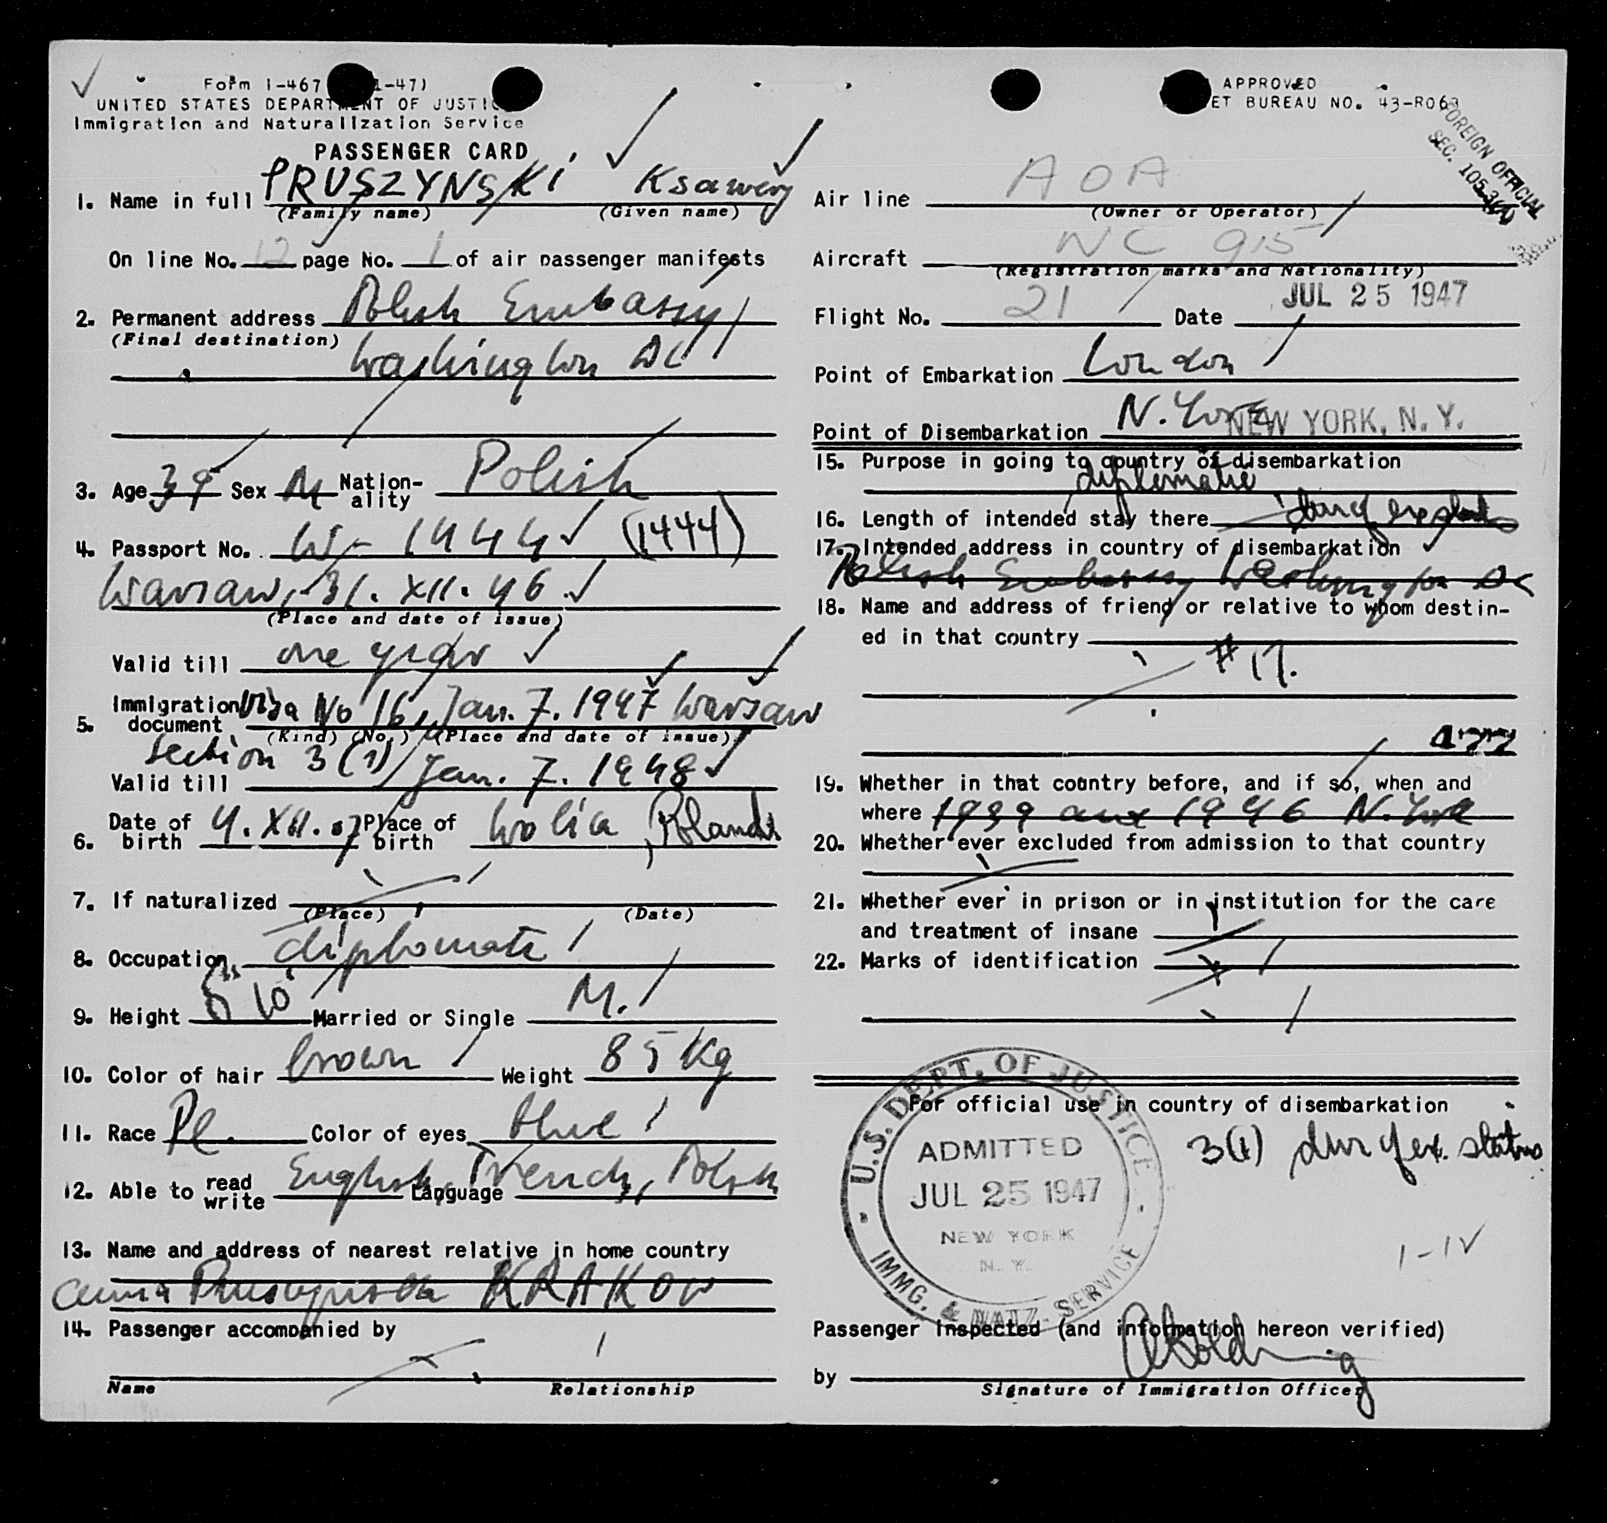 Form 1-467 1-47)
UNITED STATES DEPARTMENT OF JUSTICE
Immigration and Naturalization Service
PASSENGER CARD
1. Name in full PRUSZYNSKI Ksawery
(Family name) (Given name)
On line No. 12 page No. 1 of air passenger manifests
2. Permanent address Polish Embassy
(Final destination) Washington DC
3. Age 39 Sex M Nation-ality Polish
4. Passport No. W- 1444 (1444)
Warsaw, 31. XII. 46
(Place and date of issue)
Valid till one year
5. Immigration document Visa No 16, Jan. 7. 1947 Warsaw
(Kind) (No.) (Place and date of issue)
Section 3 (1)
Valid till Jan. 7. 1948
6. Date of birth 4. XII. 07 Place of birth Wolica, Poland
7. If naturalized
(Place) (Date)
8. Occupation diplomate
9. Height 5' 10" Married or Single M.
10. Color of hair brown Weight 85 Kg
11. Race Pl. Color of eyes blue
12. Able to read write English, Language French, Polish
13. Name and address of nearest relative in home country
Pruszynska KRAKOW
14. Passenger accompanied by
Name Relationship
APPROVED
ET BUREAU NO. 43-R063
FOREIGN OFFICIAL
SEC.
Air line AOA
(Owner or Operator)
Aircraft NC 915
(Registration marks and Nationality)
Flight No. 21 Date JUL 25 1947
Point of Embarkation London
Point of Disembarkation N. York NEW YORK, N. Y.
15. Purpose in going to country of disembarkation
diplomatic
16. Length of intended stay there
17. Intended address in country of disembarkation
Polish Embassy Washington DC
18. Name and address of friend or relative to whom destin-
ed in that country
# 17.
19. Whether in that country before, and if so, when and
where 1939 and 1946 N. York
20. Whether ever excluded from admission to that country
21. Whether ever in prison or in institution for the care
and treatment of insane
22. Marks of identification
For official use in country of disembarkation
U.S. DEPT. OF JUSTICE
ADMITTED
JUL 25 1947
NEW YORK
N. Y.
IMMG. & NATZ. SERVICE
3(1) dur of ex. status
1-1V
Passenger inspected (and information hereon verified)
by
Signature of Immigration Officer